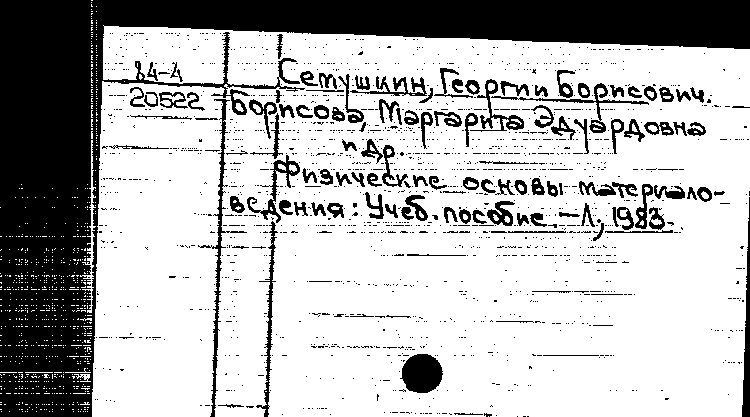 84-4
20522
Семушкин, Георгий Борисович.
Борисова, Маргарита Эдуардовна
и др.
Физические основы материало-
ведения: Учеб. пособие. – Л., 1983.